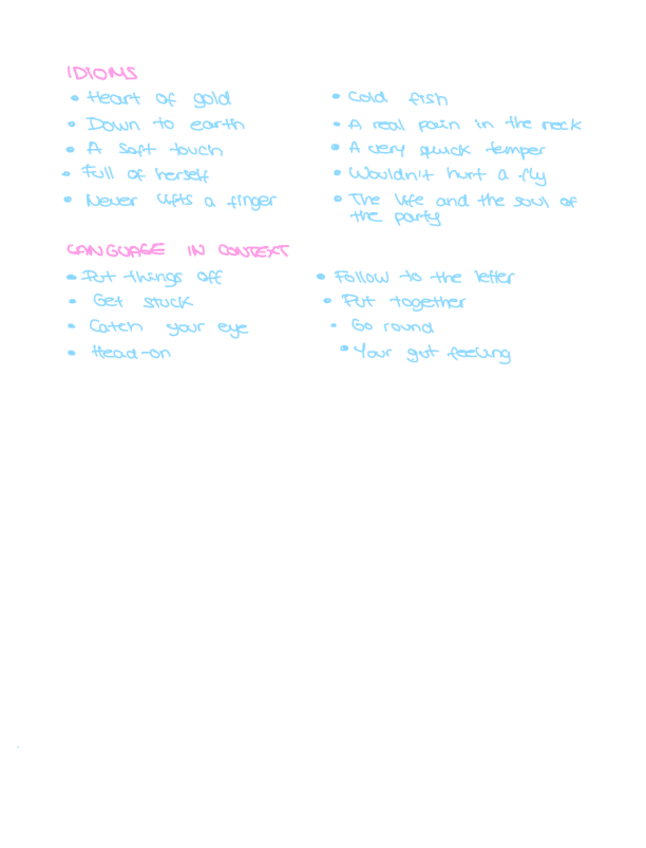 IDIOMS
• Heart of gold
• Down to earth
• A soft touch
• Full of herself
• Never lifts a finger
• Cold fish
• A real pain in the neck
• A very quick temper
• Wouldn't hurt a fly
• The life and the soul of
the party
LANGUAGE IN CONTEXT
• Put things off
• Get stuck
• Catch your eye
• Head-on
• Follow to the letter
• Put together
• Go round
• Your gut feeling